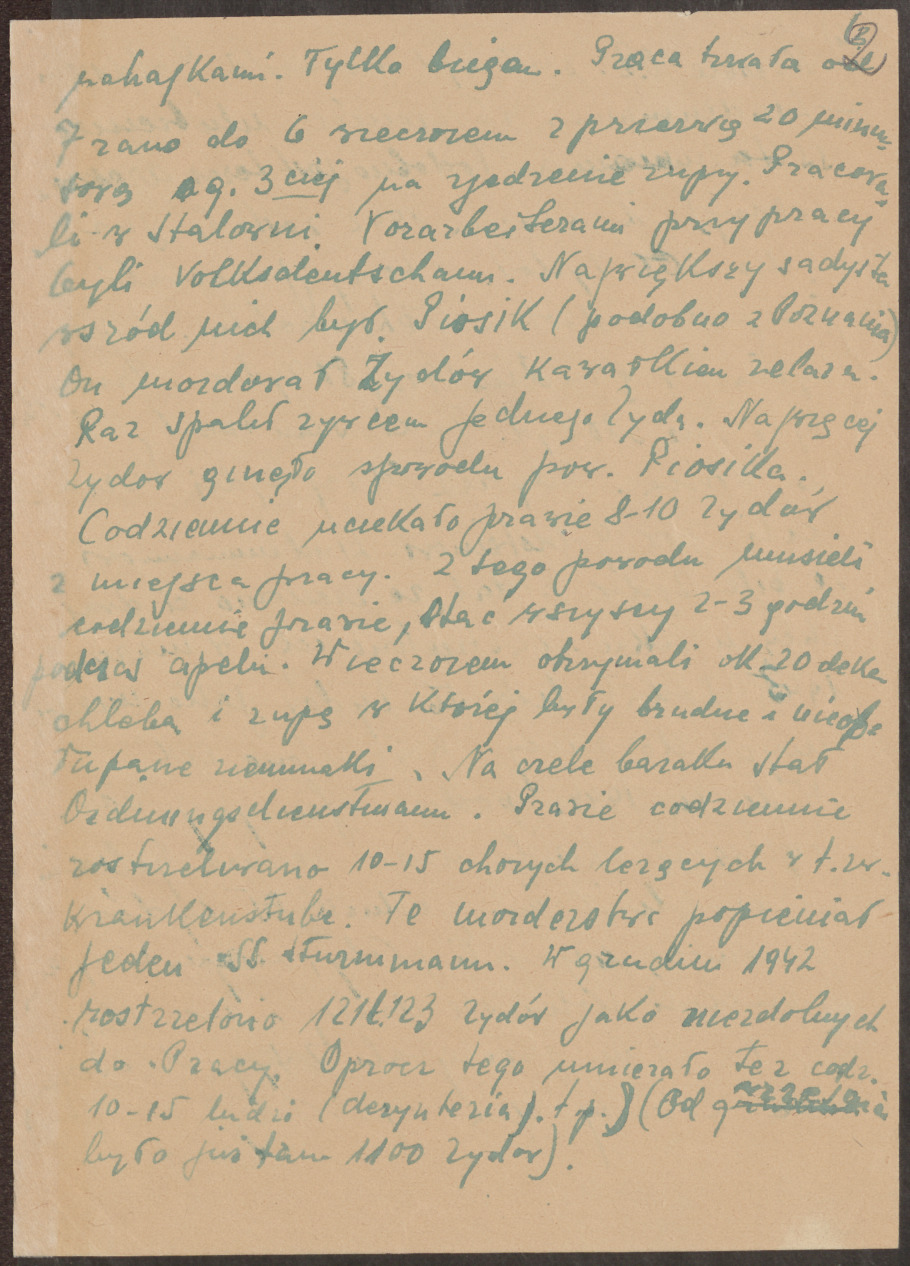 6
nahajkami. Tylko biegem. Praca trwała od
7 rano do 6 wieczorem z przerwą 20 minu-
tową o g. 3ciej na zjedzenie zupy. Pracowa-
li w Stalowni. Vorarbeiterami przy pracy
byli Volksdeutschami. Największy sadysta
wśród nich był Piosik (podobno z Poznania)
On mordował Żydów kawałkiem żelaza.
Raz spalił żywcem jednego Żyda. Najwięcej
Żydów ginęło spowodu pow. Piosika.
Codziennie uciekało prawie 8-10 Żydów
z miejsca pracy. Z tego powodu musieli
codziennie prawie, stać wszyscy 2-3 godzin
podczas apelu. Wieczorem otrzymali ok. 20 deka
chleba i zupę w której były brudne i nieobe
łupane ziemniaki. Na czele baraku stał
Ordnungsdienstmann. Prawie codziennie
rostrzeliwano 10-15 chorych leżących w t.zw.
Krankenstube. Te morderstwa popieniał
jeden SS Sturmmann. W grudniu 1942
rostrzelono 121 123 Żydów jako niezdolnych
do Pracy. Oprocz tego umierało też codz.
10-15 ludzi (dezynteria i.t.p.) (Od
było już tam 1100 Żydów).